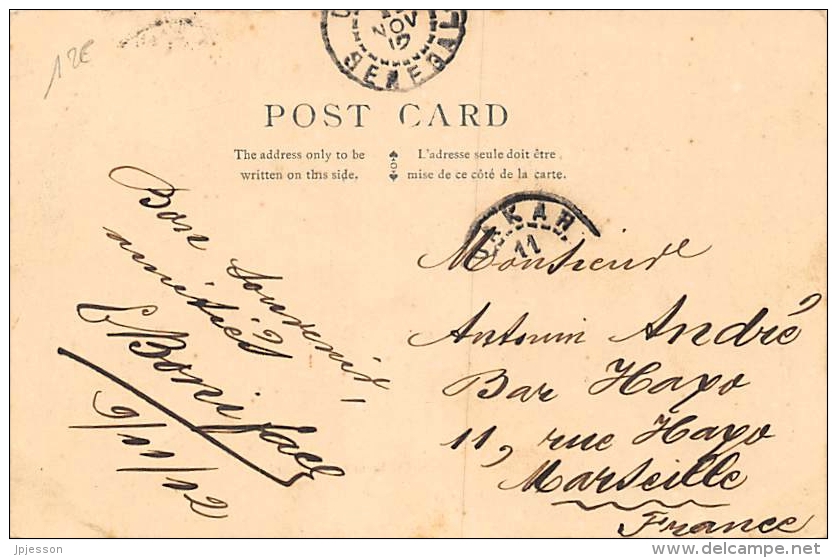 12€
NOV
SENEGAL
POST CARD
The address only to be
written on this side.
L'adresse seule doit être
mise de ce côté de la carte.
DAKAR
11
Bon souvenir,
amitiés
E Boniface
9/11/12
Monsieur
Antonin André
Bar Haxo
11, rue Haxo
Marseille
France
jpjesson
delcampe.net